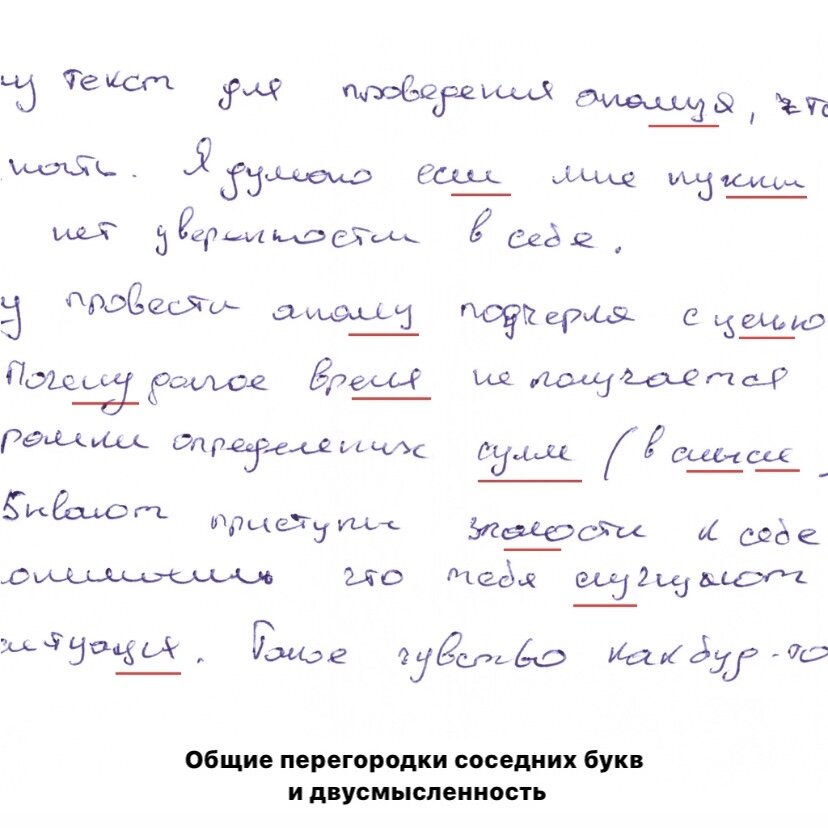 му текст для проведения анализа, что
ность. Я думаю если мне нужны
нет уверенности в себе.
у провести анализ подчерка с целью
Почему долгое время не получается
рамки определенных сумм (в смысле
Бывают приступы жалости к себе
что тебя слушают
ситуация. Такое чувство как буд-то
Общие перегородки соседних букв
и двусмысленность